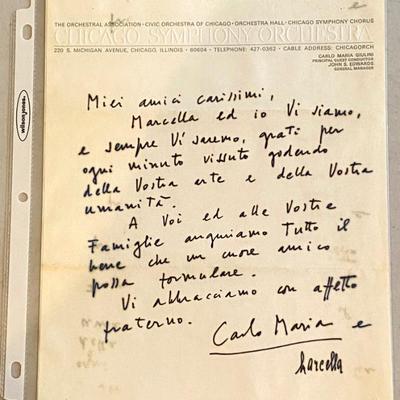 THE ORCHESTRAL ASSOCIATION · CIVIC ORCHESTRA OF CHICAGO · ORCHESTRA HALL · CHICAGO SYMPHONY CHORUS
CHICAGO SYMPHONY ORCHESTRA
220 S. MICHIGAN AVENUE, CHICAGO, ILLINOIS · 60604 · TELEPHONE: 427-0362 · CABLE ADDRESS: CHICAGORCH
CARLO MARIA GIULINI
PRINCIPAL GUEST CONDUCTOR
JOHN S. EDWARDS
GENERAL MANAGER
wilson jones
Miei amici carissimi,
Marcella ed io Vi siamo,
e sempre Vi saremo, grati per
ogni minuto vissuto godendo
della Vostra arte e della Vostra
umanità.
A Voi ed alle Vostre
Famiglie auguriamo tutto il
bene che un cuore amico
possa formulare.
Vi abbracciamo con affetto
fraterno.
Carlo Maria e
Marcella